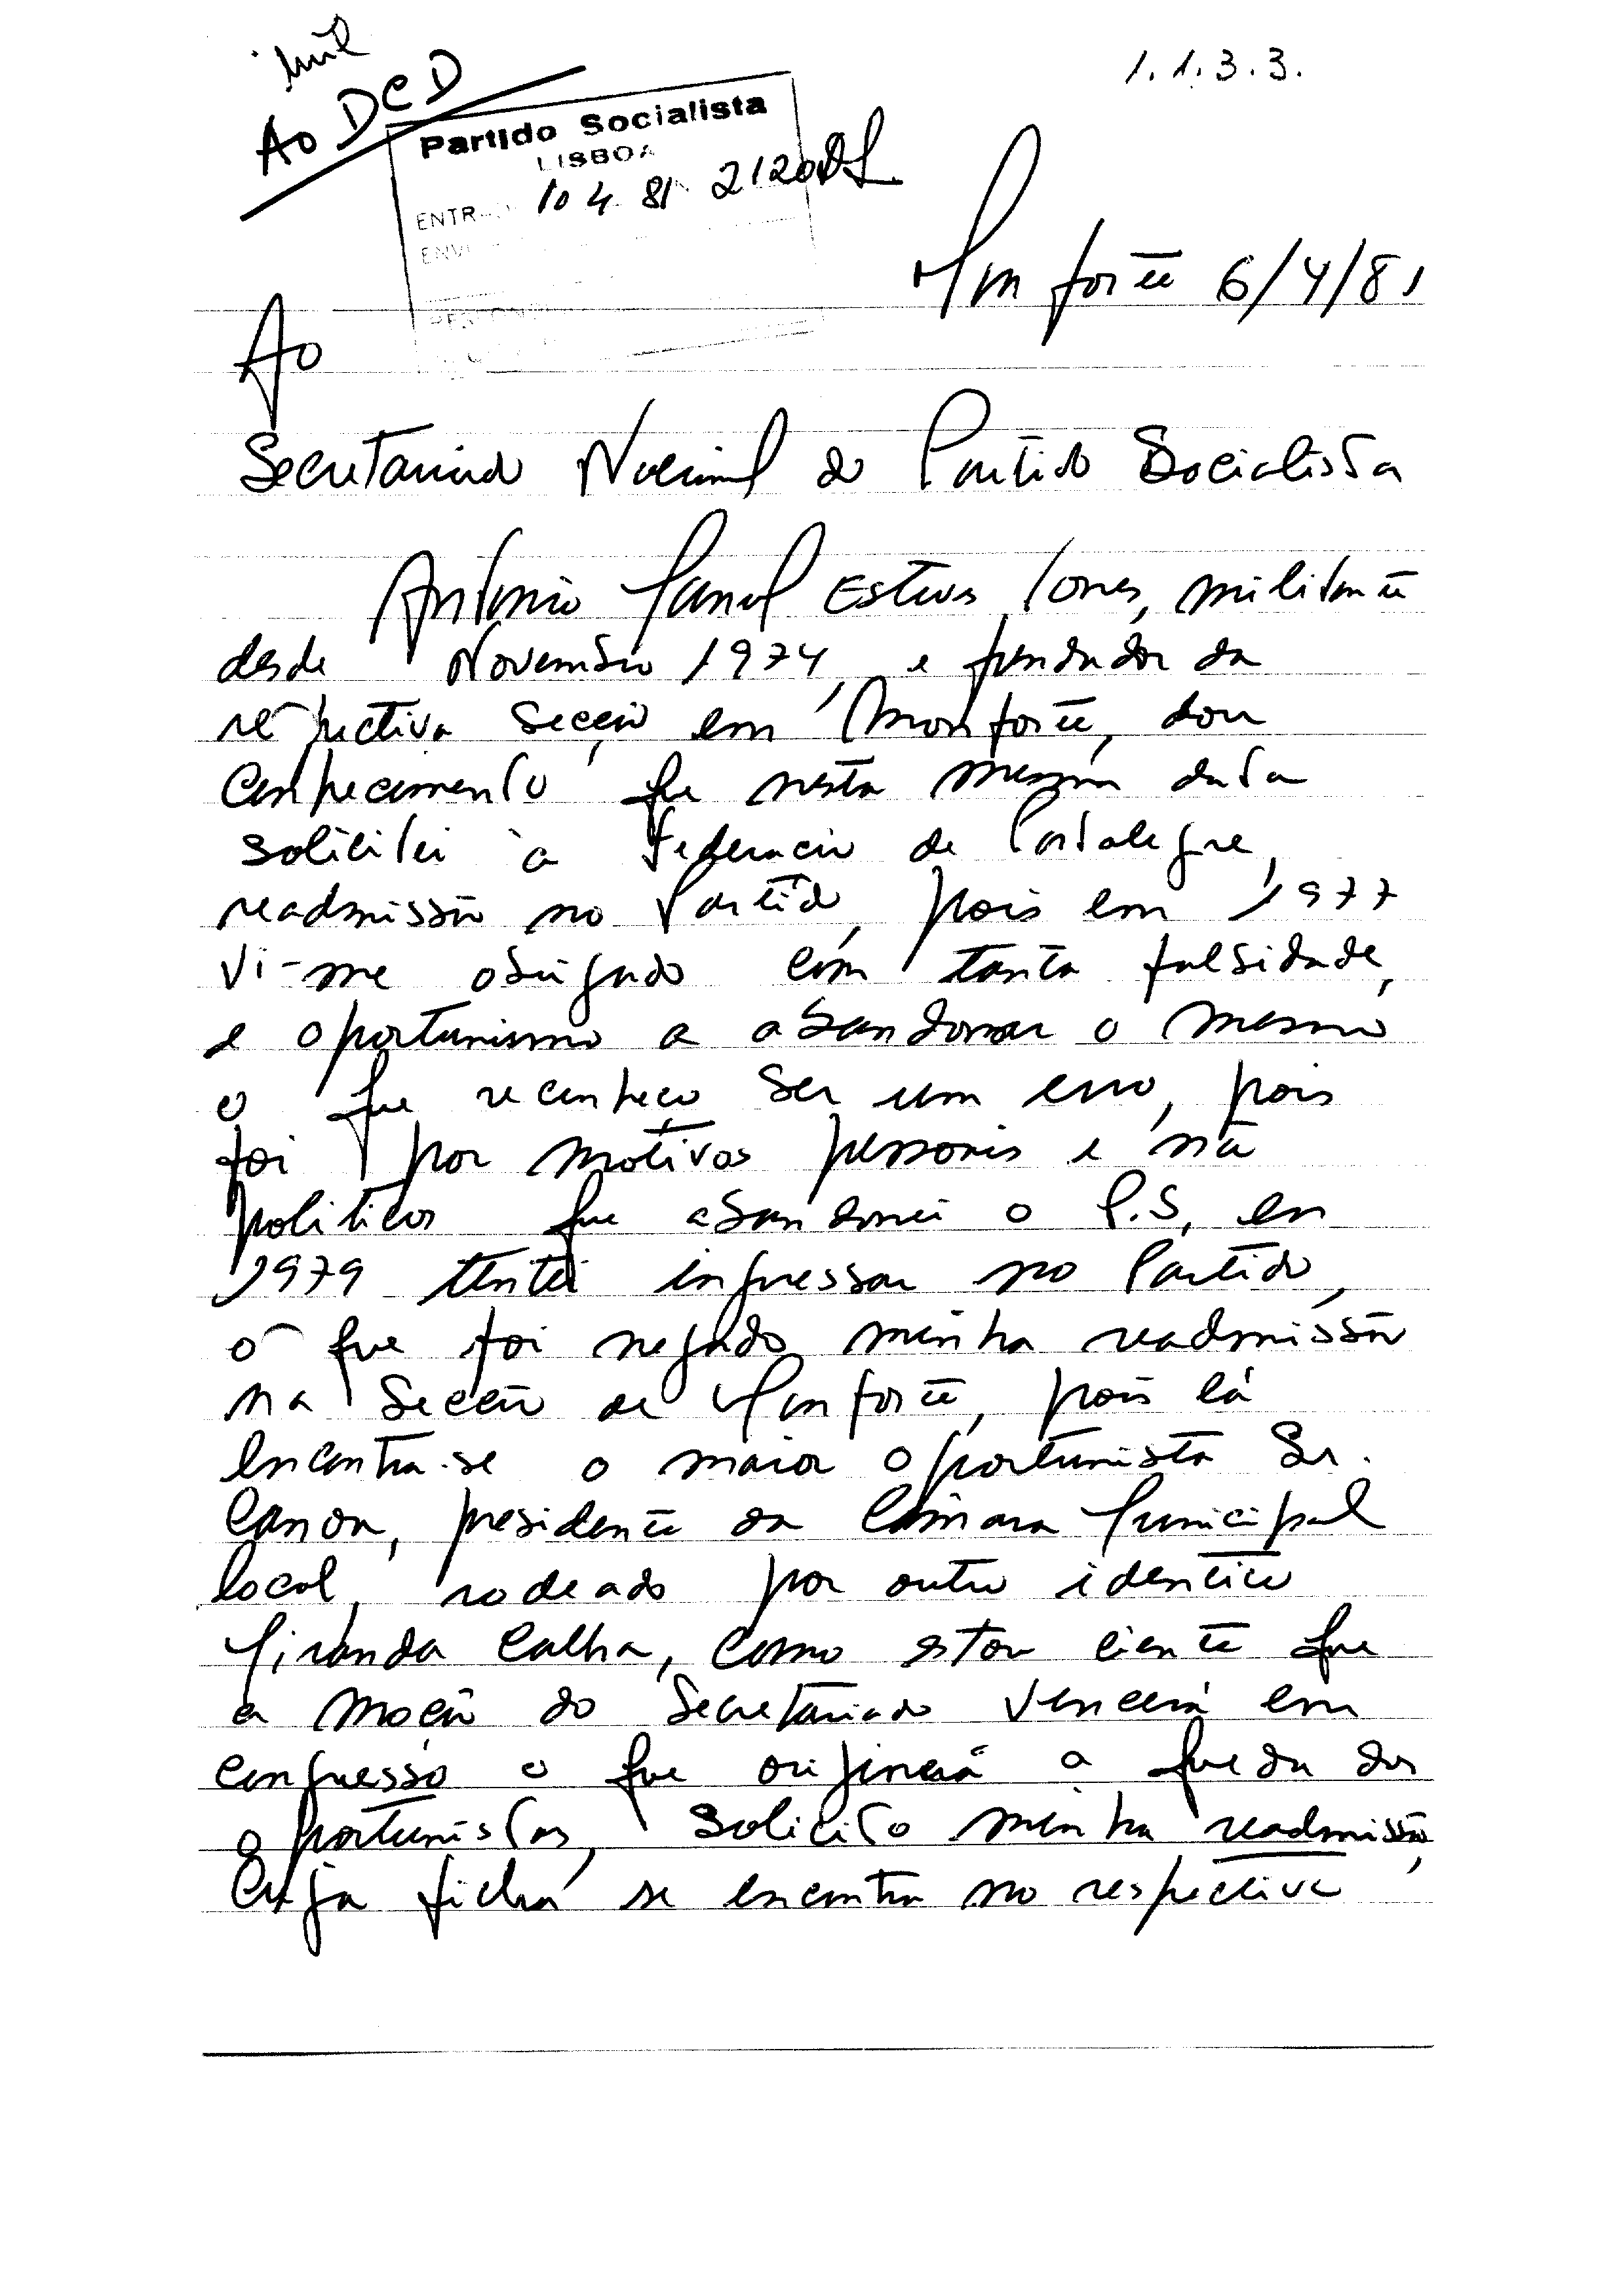 1.1.3.3.
Ao DCD
Partido Socialista
LISBOA
10 4 81 2120
Monforte 6/4/81
Ao
Secretariado Nacional do Partido Socialista
António Manuel Esteves, militante
desde Novembro 1974, e fundador da
respectiva Secção em Monforte, dou
conhecimento que nesta mesma data
solicitei à Federação de Portalegre,
readmissão no Partido, pois em 1977
vi-me obrigado com tanta falsidade,
e oportunismo a abandonar o mesmo
o que reconheço ser um erro, pois
foi por motivos pessoais e não
politicos que abandonei o P.S, em
1979 tentei ingressar no Partido,
o que foi negado minha readmissão
na Secção de Monforte, pois lá
encontra-se o maior oportunista Sr.
Canoa, presidente da Câmara Municipal
local, rodeado por outro identico
Miranda Calha, como estou ciente que
a moção do Secretariado vencerá em
congresso o que originará a queda dos
oportunistas, solicito minha readmissão,
cuja ficha se encontra no respectivo